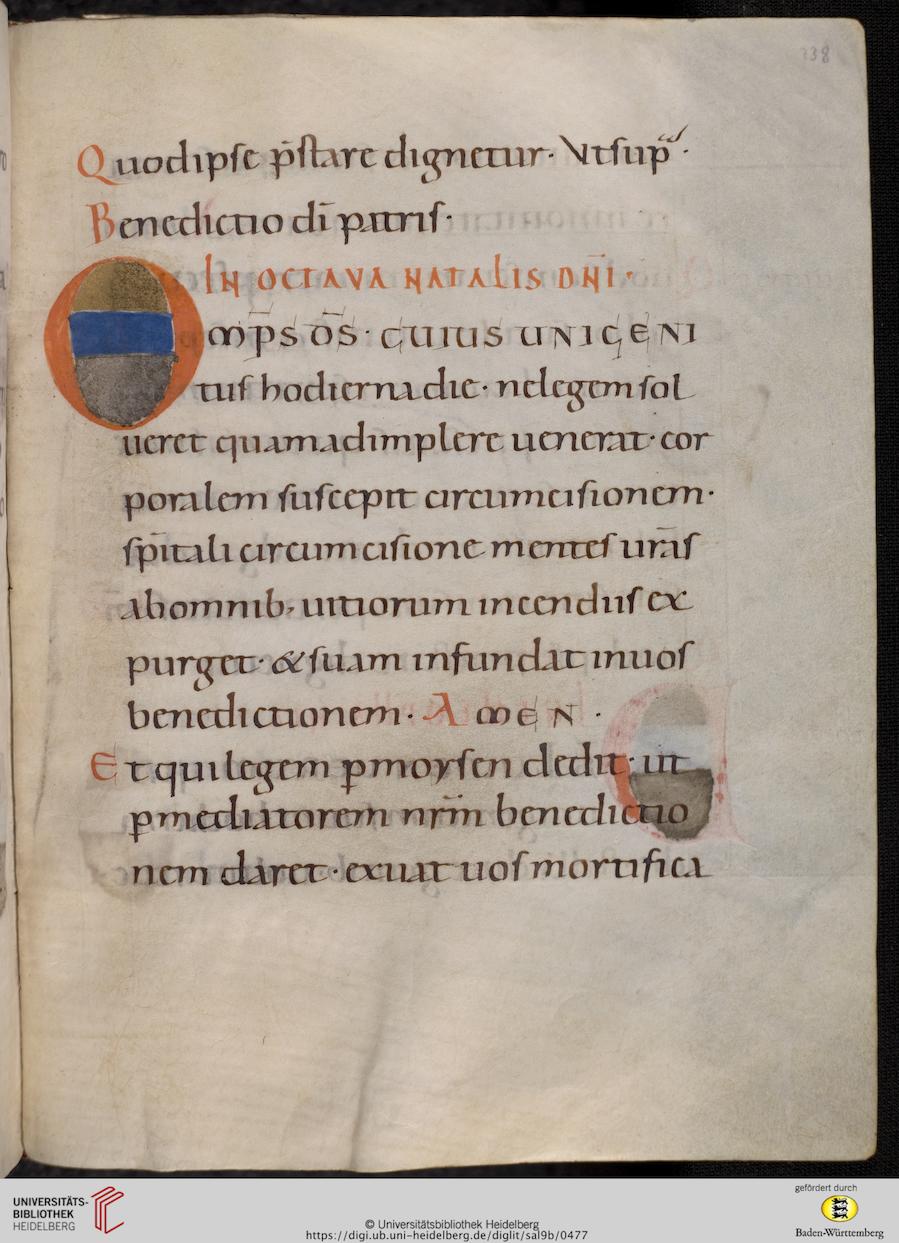 238
Quod ipse p̄stare dignetur· Vt sup̄·
Benedictio dī patris·
IN OCTAVA NATALIS DN̄I·
Omp̄s d̄s· cuius unigeni
tus hodierna die· ne legem sol
ueret quam adimplere uenerat· cor
poralem suscepit circumcisionem·
sp̄itali circumcisione mentes ur̄as
ab omnib; uitiorum incendiis ex
purget· & suam infundat in uos
benedictionem· AMEN·
Et qui legem p̲ moysen dedit· ut
p̲ mediatorem nr̄m benedictio
nem daret· exuat uos mortifica
UNIVERSITÄTS-
BIBLIOTHEK
HEIDELBERG
© Universitätsbibliothek Heidelberg
https://digi.ub.uni-heidelberg.de/diglit/sal9b/0477
gefördert durch
Baden-Württemberg